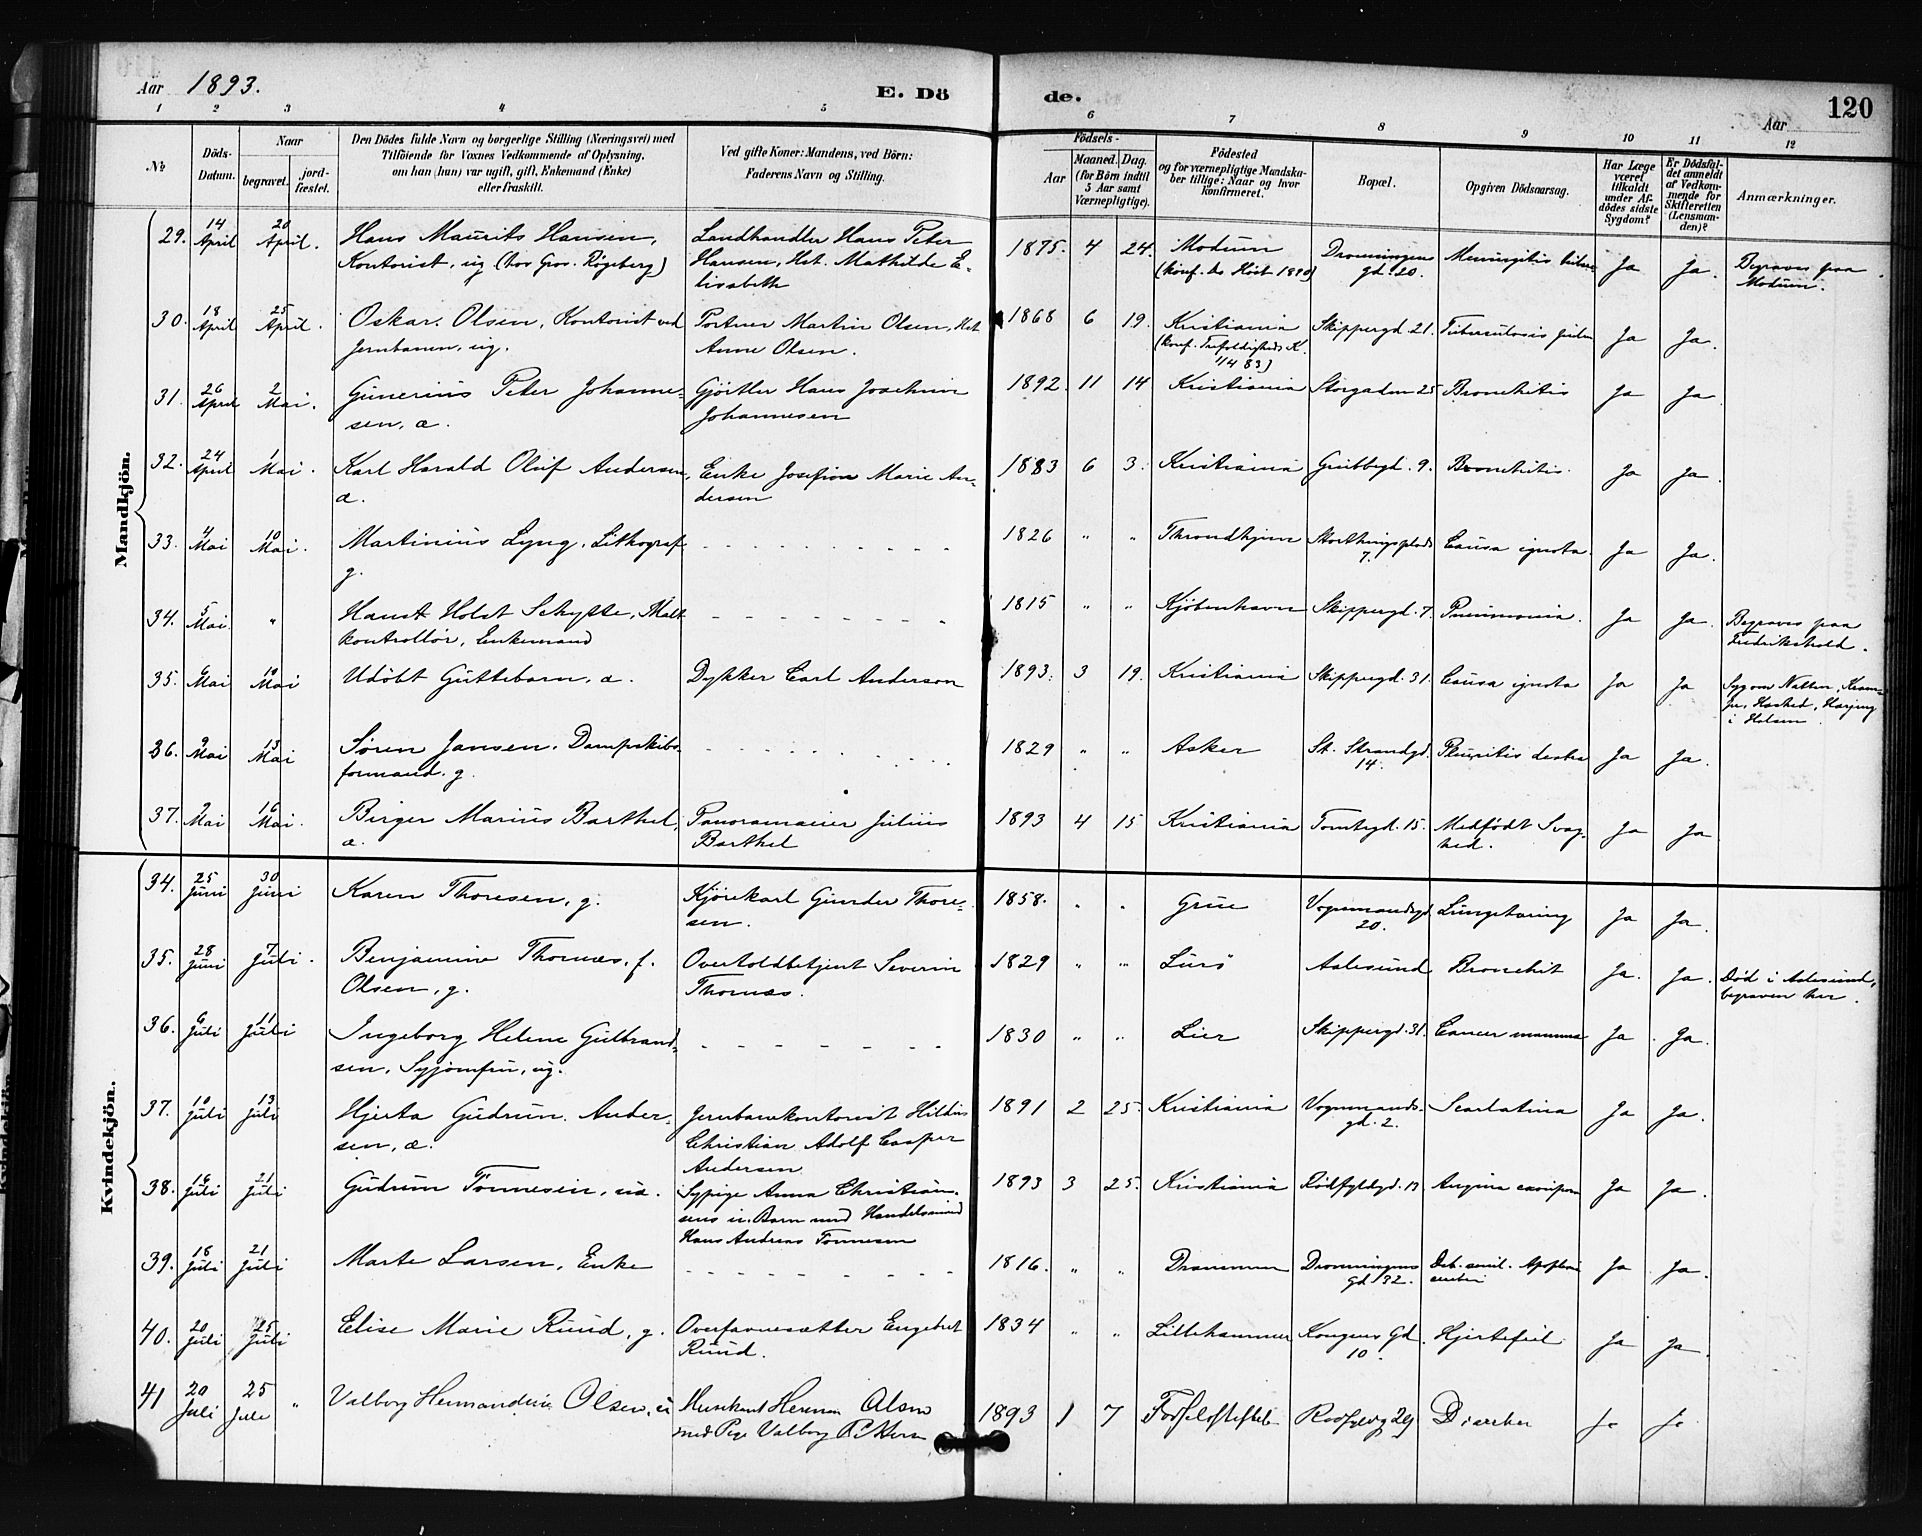 Aar 1893. E. Dö de. Aar 120
1 2 3 4 5 6 7 8 9 10 11 12
No. Döds-Datum. Naar begravet. jord-fæstet. Den Dödes fulde Navn og borgerlige Stilling (Næringsvei) med Tilföiende for Voxnes Vedkommende af Oplysning, om han (hun) var ugift, gift, Enkemand (Enke) eller fraskilt. Ved gifte Koner: Mandens, ved Börn: Faderens Navn og Stilling. Födsels- Aar Maaned. Dag. (for Börn indtil 5 Aar samt Værnepligtige). Födested og for værnepligtige Mandskaber tillige: Naar og hvor konfirmeret. Bopæl. Opgiven Dödsaarsag. Har Læge været tilkaldt under Afdödes sidste Sygdom? Er Dödsfaldet anmeldt af Vedkommende for Skifteretten (Lensmanden)? Anmærkninger.
Mandkjön.
29. 14 April 20 April. Hans Maurits Hansen, Kontorist, ug (hos Gros. Røgeberg) Landhandler Hans Peter Hansen, Hst. Mathilde Elisabeth 1875. 4 24. Modum (konf. ds Høst 1890) Dronningens gd. 20. Meningitis Ja Ja. Begraves paa Modum.
30. 18 April 25 April. Oskar Olsen, Kontorist ved Jernbanen, ug. Portner Martin Olsen, Hst Anne Olsen. 1868 6 19. Kristiania (konf. Trefoldigheds K. 1/4 83) Skippergd. 21. Tuberculosis Ja Ja.
31. 26 April 2 Mai. Gunerius Peter Johannesen, æ. Gjörtler Hans Joachim Johannesen 1892. 11 14 Kristiania Storgaden 25 Bronchitis Ja Ja.
32. 24 April 1 Mai. Karl Harald Oluf Andersen, æ. Enke Josefine Marie Andersen 1883 6 3. Kristiania Grubbegd. 9. Bronchitis. Ja Ja.
33. 4 Mai 10 Mai. Martinius Lyng, Lithograf g. 1826 " " Throndhjem Storthingsplads 7. Causa ignota. Ja Ja.
34. 5 Mai. " Hans Holst Schytte, Malt kontrollør, Enkemand 1815 " " Kjöbenhavn Skippergd. 7. Pneumonia. Ja Ja. Begraves paa Fredrikshald.
35. 6 Mai 10 Mai Udöbt Guttebarn, æ. Dykker Carl Anderson 1893. 3 19. Kristiania Skippergd. 31. Causa ignota Ja Ja Syg om Natten, Hosted, i Halsen.
36. 9 Mai 13 Mai Søren Jansen, Dampskibsformand. g. 1829 " " Asker St. Strandgd. 14. Pleuritis dextra Ja Ja.
37. 9 Mai 16 Mai. Birger Marius Barthel, æ. Panoramaeier Julius Barthel 1893 4 15 Kristiania Tomtegd. 15. Medfödt Svaghed. Ja Ja
Kvindekjön.
34. 25 Juni 30 Juni Karen Thoresen, g. Kjörekarl Gunder Thoresen. 1858. " " Grue Vognmandsgd. 20. Lungetæring Ja Ja.
35. 28 Juni 7 Juli. Benjamine Thornæs, f. Olsen, g. Overtoldbetjent Severin Thornæs. 1829 " " Lurö Aalesund Bronchit Ja. Ja. Död i Aalesund, begraven her.
36. 6 Juli 11 Juli Ingeborg Helene Gulbrandsen, Syjomfru, ug. 1830 " " Lier Skippergd. 31. Cancer mamma Ja. Ja.
37. 10 Juli 13 Juli Hjerta Gudrun Andersen, æ. Jernbanekontorist Christian Adolf Casper Andersen 1891 2 25. Kristiania Vognmandsgd. 2. Scarlatina Ja Ja.
38. 16 Juli 21 Juli Gudrun Tønnesen, uæ. Sypige Anna Christiansens u. Barn med Handelsmand Hans Andreas Tonnesen 1893 3 25. Kristiania Rödfyldgd. 13 Angina Ja Ja.
39. 18 Juli 21 Juli Marte Larsen, Enke 1816. " " Drammen Dronningens Gd. 32. Deb. senil. Ja Ja.
40. 20 Juli 25 Juli Elise Marie Ruud, g. Overfarvesætter Engebret Ruud. 1834 " " Lillehammer Kongens Gd. 10. Hjertefeil Ja Ja.
41 20 Juli 25 Juli " Valborg Hermandine Olsen, u Musikant Herman Olsen med Pige Valborg 1893 1 7 Födselsstiftels Rodfyldg 29 Diarrhe Ja Ja